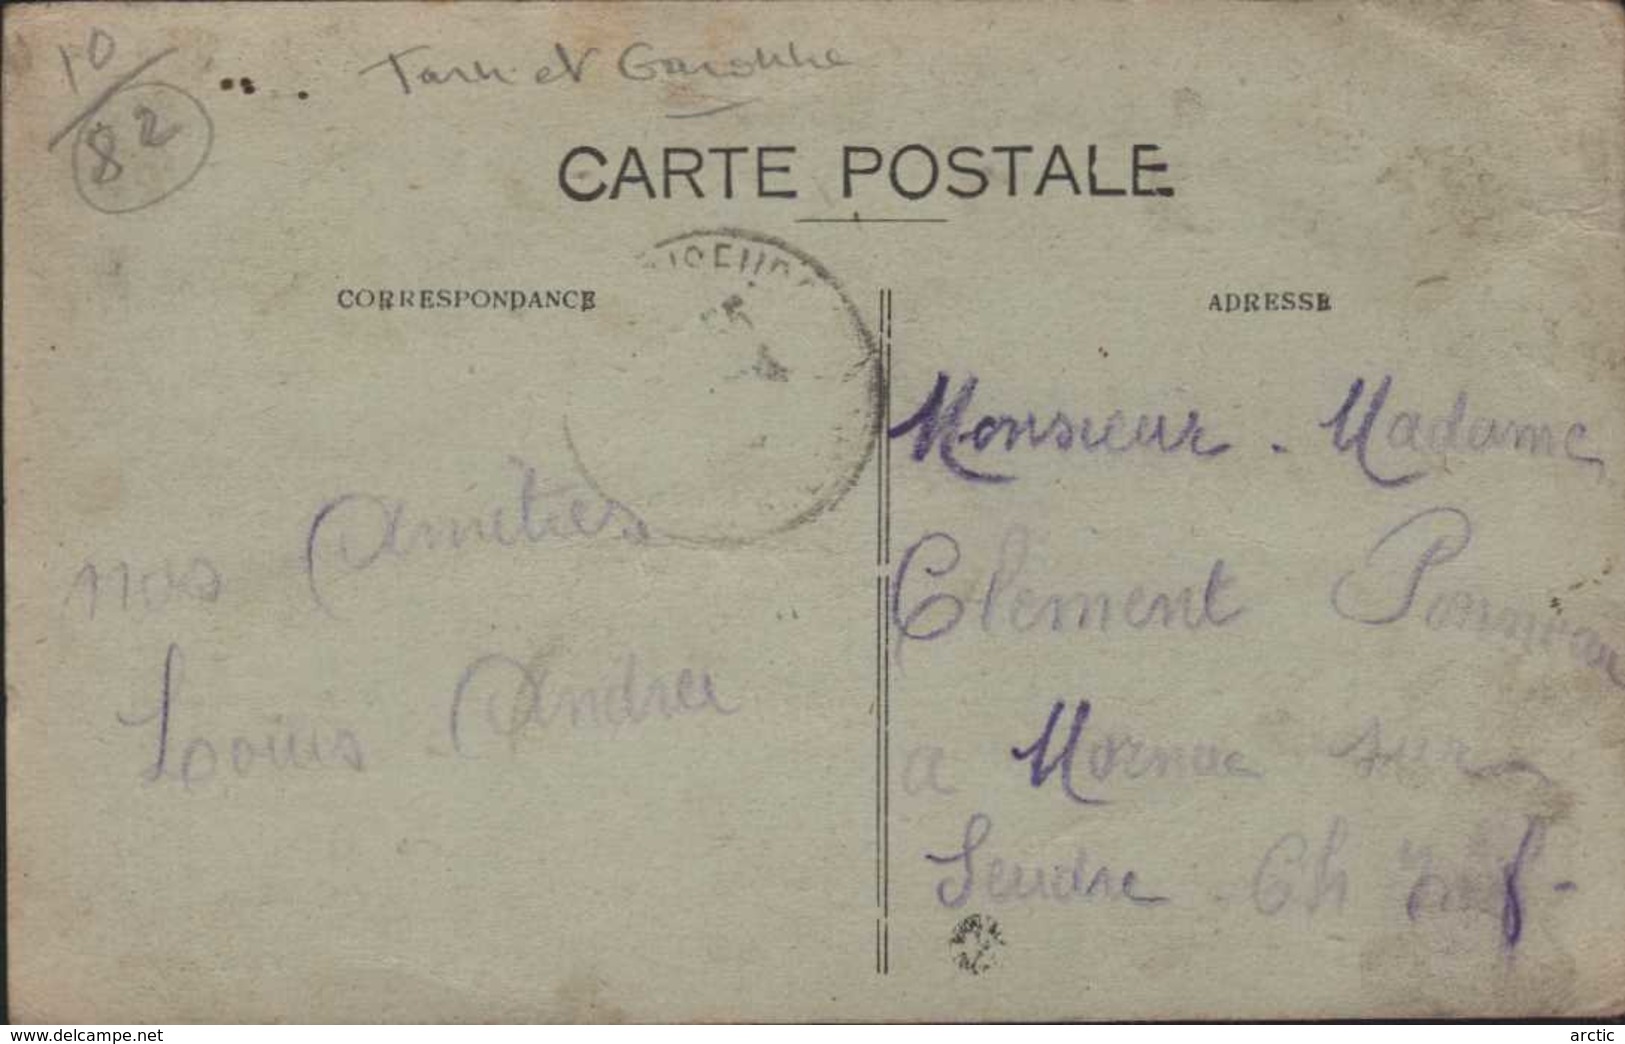 10
82
Tarn et Garonne
CARTE POSTALE
CORRESPONDANCE
ADRESSE
nos Amitiés
Louis Andrea
Monsieur - Madame
Clement
a Mornac sur
Seudre - Ch Inf -
Delcampe.net
arctic